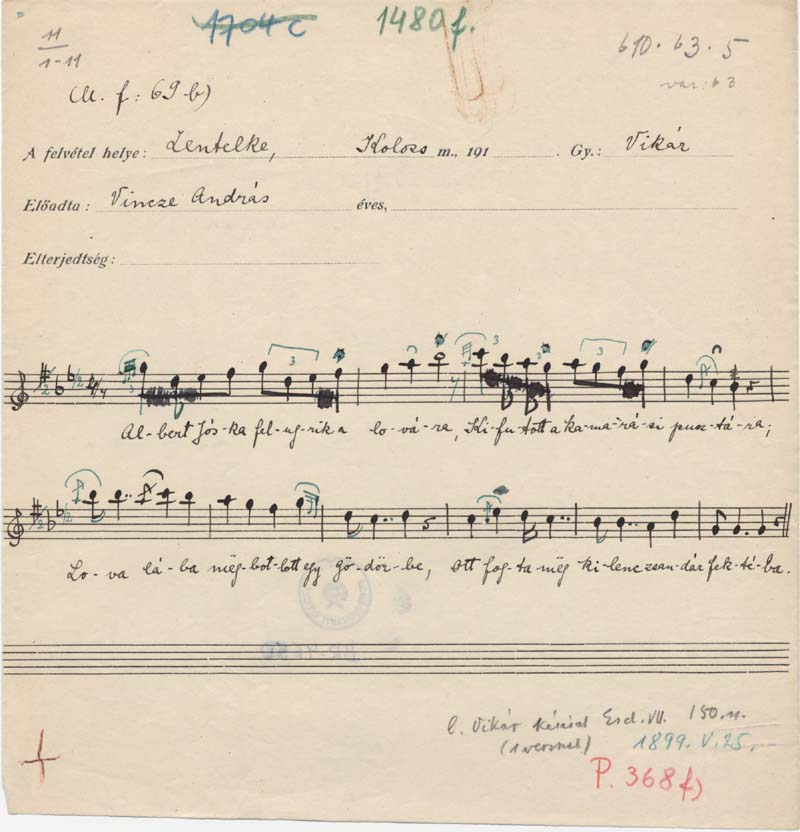 11
1-11
1704 c
1480 f.
610. 63. 5
var: 63
(M. f: 69 b)
A felvétel helye: Zentelke, Kolozs m., 191 . Gy.: Vikár
Előadta: Vincze András éves,
Elterjedtség:
Al-bert Jós-ka fel-ug-rik a lo-vá-ra, Ki-fu-tott a ka-ma-rá-si pusz-tá-ra;
Lo-va lá-ba még-bot-lott egy gö-dör-be, Ott fog-ta még ki-lenc zsan-dár fek-té-ba.
l. Vikár Erd. VII. 150. n.
1899. V. 25.
P. 368 f)